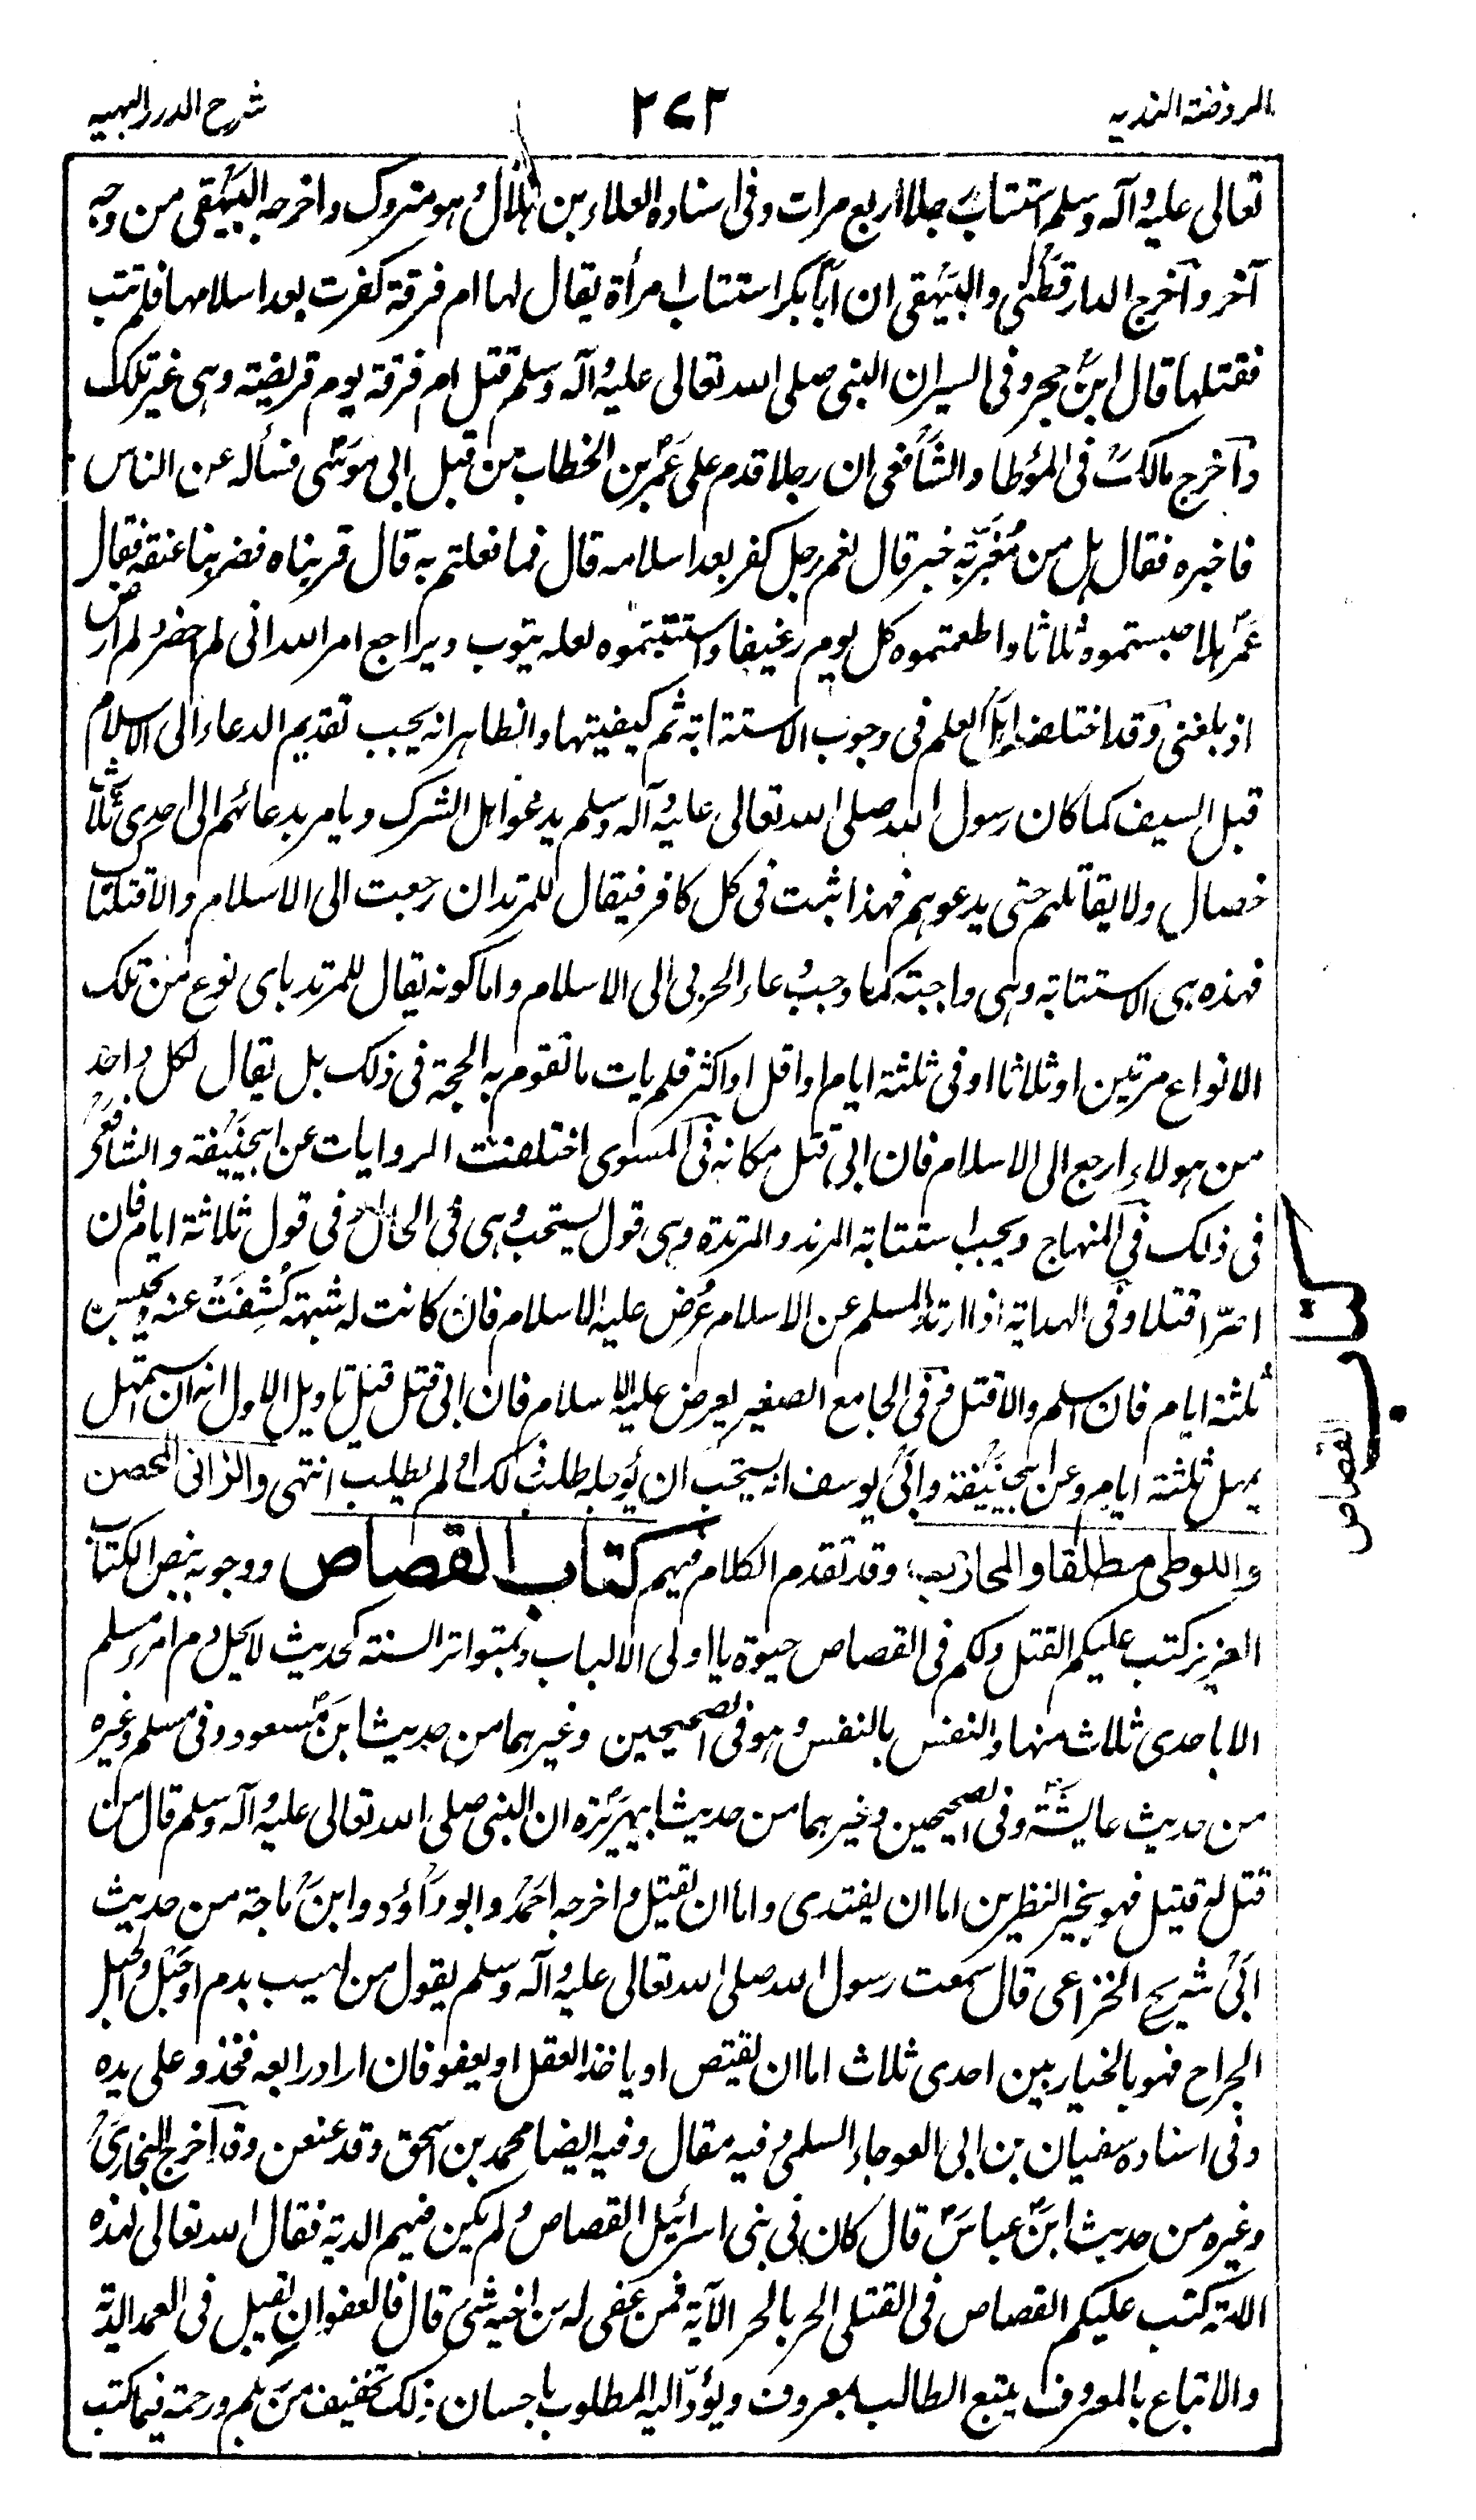 الروضة الندیه
٢٧٢
شرح الدرر البهیه
تعالى عليه وآله وسلم استتاب رجلا اربع مرات وفى اسناده العلاء بن هلال وهو متروك واخرجه البيهقى من وجه
آخر وآخرج الدارقطنى والبيهقى ان ابا بكر استتاب امرأة يقال لها ام فرقة كفرت بعد اسلامها فلم تتب
فقتلها قال ابن حجر وفى السير ان النبى صلى الله تعالى عليه وآله وسلم قتل ام فرقة يوم قريضته وهى غير تلك
وآخرج مالك فى المؤطا والشافعى ان رجلا قدم على عمر بن الخطاب من قبل ابى موسى فسأله عن الناس
فاخبره فقال هل من مغربة خبر قال نعم رجل كفر بعد اسلامه قال فما فعلتم به قال قربناه فضربنا عنقه فقال
عمر هلا حبستموه ثلاثا واطعمتموه كل يوم رغيفا واستتبتموه لعله يتوب ويراجع امر الله انى لم احضر ولم ارض
اذ بلغنى وقد اختلف اهل العلم فى وجوب الاستتابة ثم كيفيتها والظاهر انه يجب تقديم الدعاء الى الاسلام
قبل السيف كما كان رسول الله صلى الله تعالى عليه وآله وسلم يدعوا اهل الشرك ويامر بدعائهم الى احدى ثلاث
خصال ولا يقاتلهم حتى يدعوهم فهذا ثبت فى كل كافر فيقال للمرتد ان رجعت الى الاسلام والا قتلناك
فهذه هى الاستتابة وهى واجبة كما وجب دعاء الحربى الى الاسلام واما كونه يقال للمرتد باى نوع من تلك
الانواع مرتين او ثلاثا او فى ثلثة ايام او اقل او اكثر فلم يات ما تقوم به الحجة فى ذلك بل يقال لكل واحد
من هولاء ارجع الى الاسلام فان ابى قتل مكانه فى المسوى اختلفت الروايات عن ابيحنيفة والشافعى
فى ذلك فى المنهاج ويجب استتابة المرتد والمرتدة وفى قول يستحب وهى فى الحال وفى قول ثلاثة ايام فان
اصرا قتلا وفى الهداية اذا ارتد المسلم عن الاسلام عرض عليه الاسلام فان كانت له شبهة كُشِفَت عنه ويحبس
ثلثة ايام فان اسلم والا قتل وفى الجامع الصغير يعرض عليه الاسلام فان ابى قتل قيل تاويل الاول انه ان استمهل
يمهل ثلثة ايام وعن ابيحنيفة وابى يوسف انه يستحب ان يؤجله طلب ذلك او لم يطلب انتهى والزانى المحصن
واللوطى مطلقا والمحارب وقد تقدم الكلام فيهم كتاب القصاص ووجوبه بنص الكتاب
العزيز كتب عليكم القتل ولكم فى القصاص حيوة يا اولى الالباب وبمتواتر السنة كحديث لا يحل دم امرء مسلم
الا باحدى ثلاث منها والنفس بالنفس وهو فى الصحيحين وغيرهما من حديث ابن مسعود وفى مسلم وغيره
من حديث عايشة وفى الصحيحين وغيرهما من حديث ابيهريرة ان النبى صلى الله تعالى عليه وآله وسلم قال من
قتل له قتيل فهو بخير النظرين اما ان يفتدى واما ان يقتل واخرجه احمد وابو داؤد وابن ماجة من حديث
ابى شريح الخزاعى قال سمعت رسول الله صلى الله تعالى عليه وآله وسلم يقول من اصيب بدم او خبل والخبل
الجراح فهو بالخيار بين احدى ثلاث اما ان يقتص او ياخذ العقل او يعفو فان اراد رابعه فخذوا على يده
وفى اسناده سفيان بن ابى العوجاء السلمى وفيه مقال وفيه ايضا محمد بن اسحق وقد عنعن وقد آخرج البخارى
وغيره من حديث ابن عباس قال كان فى بنى اسرائيل القصاص ولم يكن فيهم الدية فقال الله تعالى لهذه
الامة كتب عليكم القصاص فى القتلى الحر بالحر الآية فمن عفى له من اخيه شئ قال فالعفو ان يقبل فى العمد الدية
والاتباع بالمعروف يتبع الطالب بمعروف ويؤدى اليه المطلوب باحسان ذلك تخفيف من ربكم ورحمة فيما كتب
القصاص